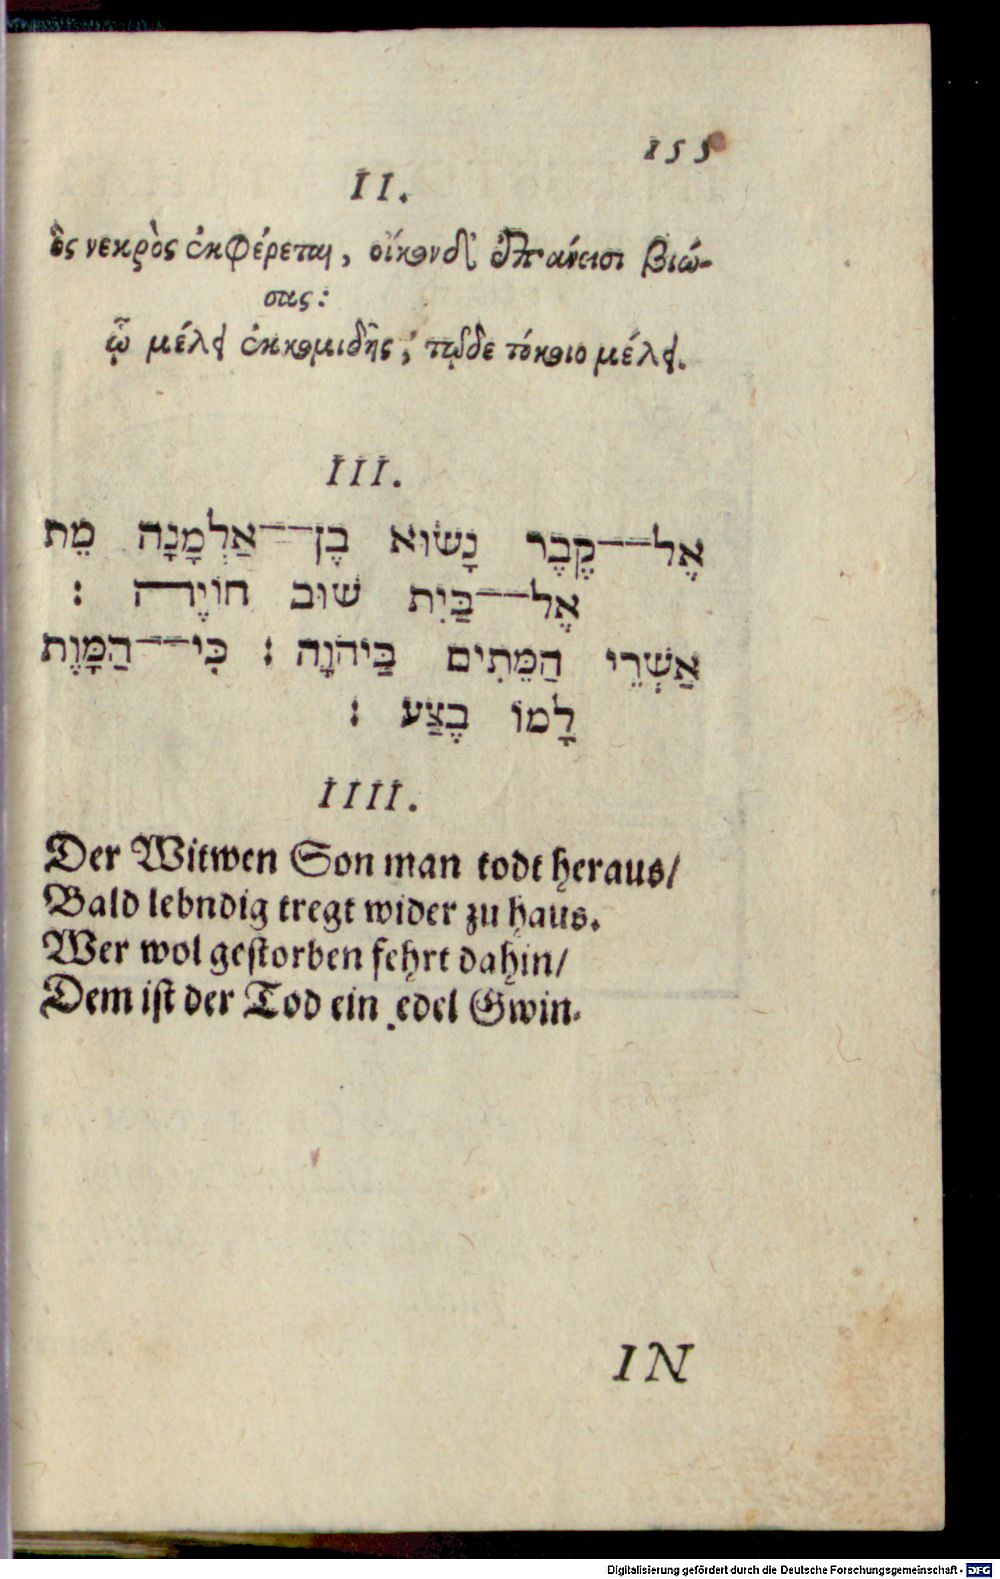 155
II.
ὃς νεκρὸς ἐκφέρεται, οἴκονδ᾽ ἐπάνεισι βιώ-
σας:
ᾧ μέλει ἐκκομιδῆς, τῷδε τόκοιο μέλει.
III.
אֶל־־קֶבֶר נָשׂוּא בֶן־־אַלְמָנָה מֵת
אֶל־־בַּיִת שׁוּב חוֹיֶה :
אַשְׁרֵי הַמֵּתִים בַּיהֹוָה : כִּי־־הַמָּוֶת
לָמוֹ בֶצַע :
IIII.
Der Witwen Son man todt heraus/
Bald lebndig tregt wider zu haus.
Wer wol gestorben fehrt dahin/
Dem ist der Tod ein edel Gwin.
IN
Digitalisierung gefördert durch die Deutsche Forschungsgemeinschaft - DFG